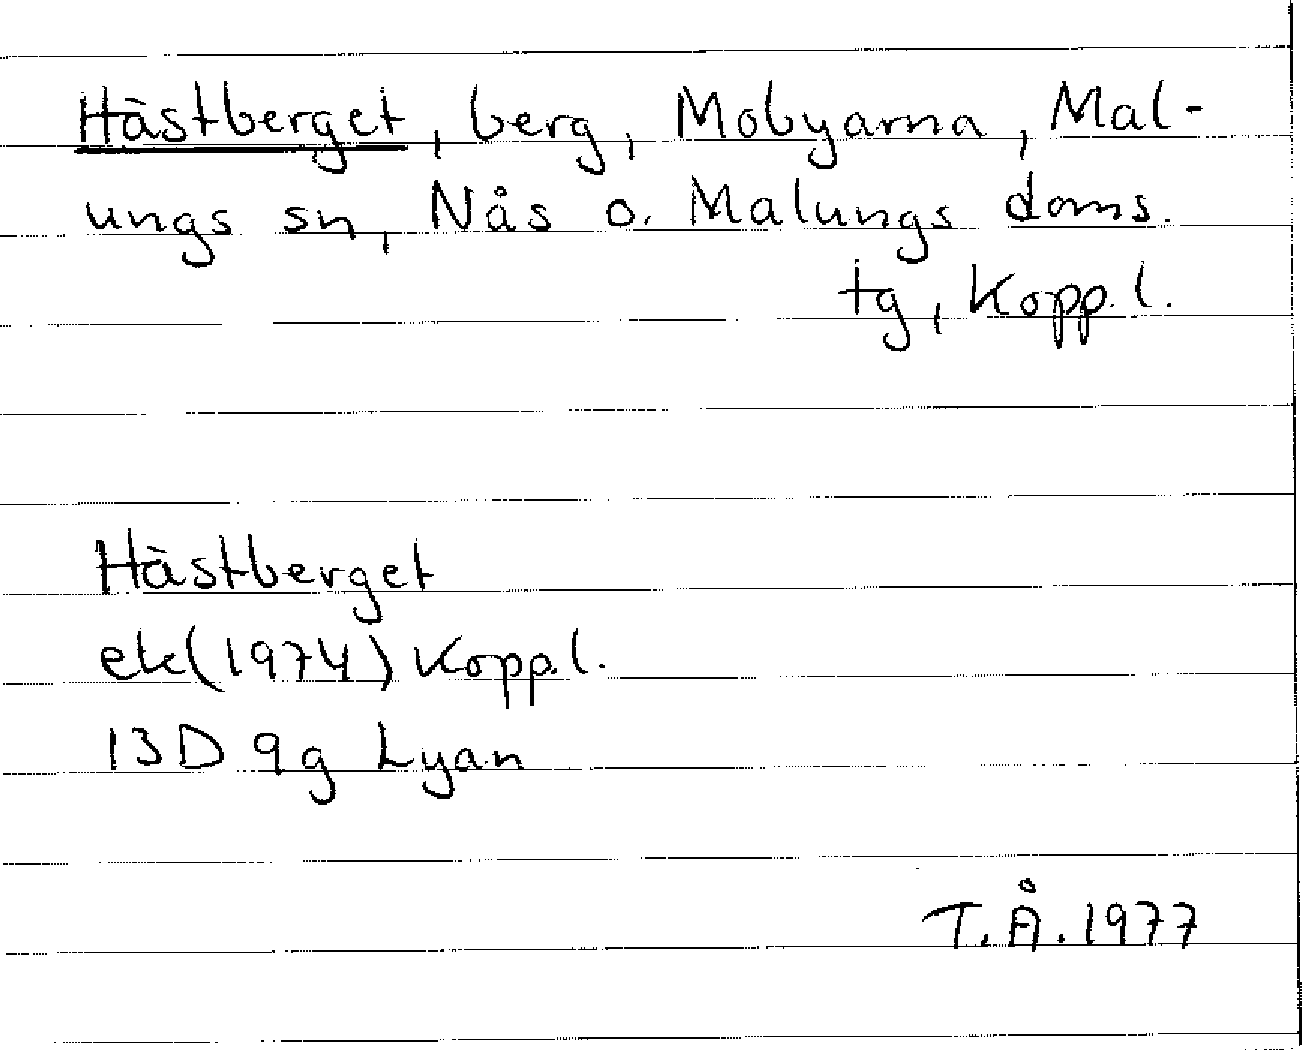 Hästberget, berg, Mobyarna, Mal-
ungs sn, Nås o. Malungs doms.
tg, Kopp.l.
Hästberget
ek(1974) Kopp.l.
13D 9g Lyan
T.Å.1977